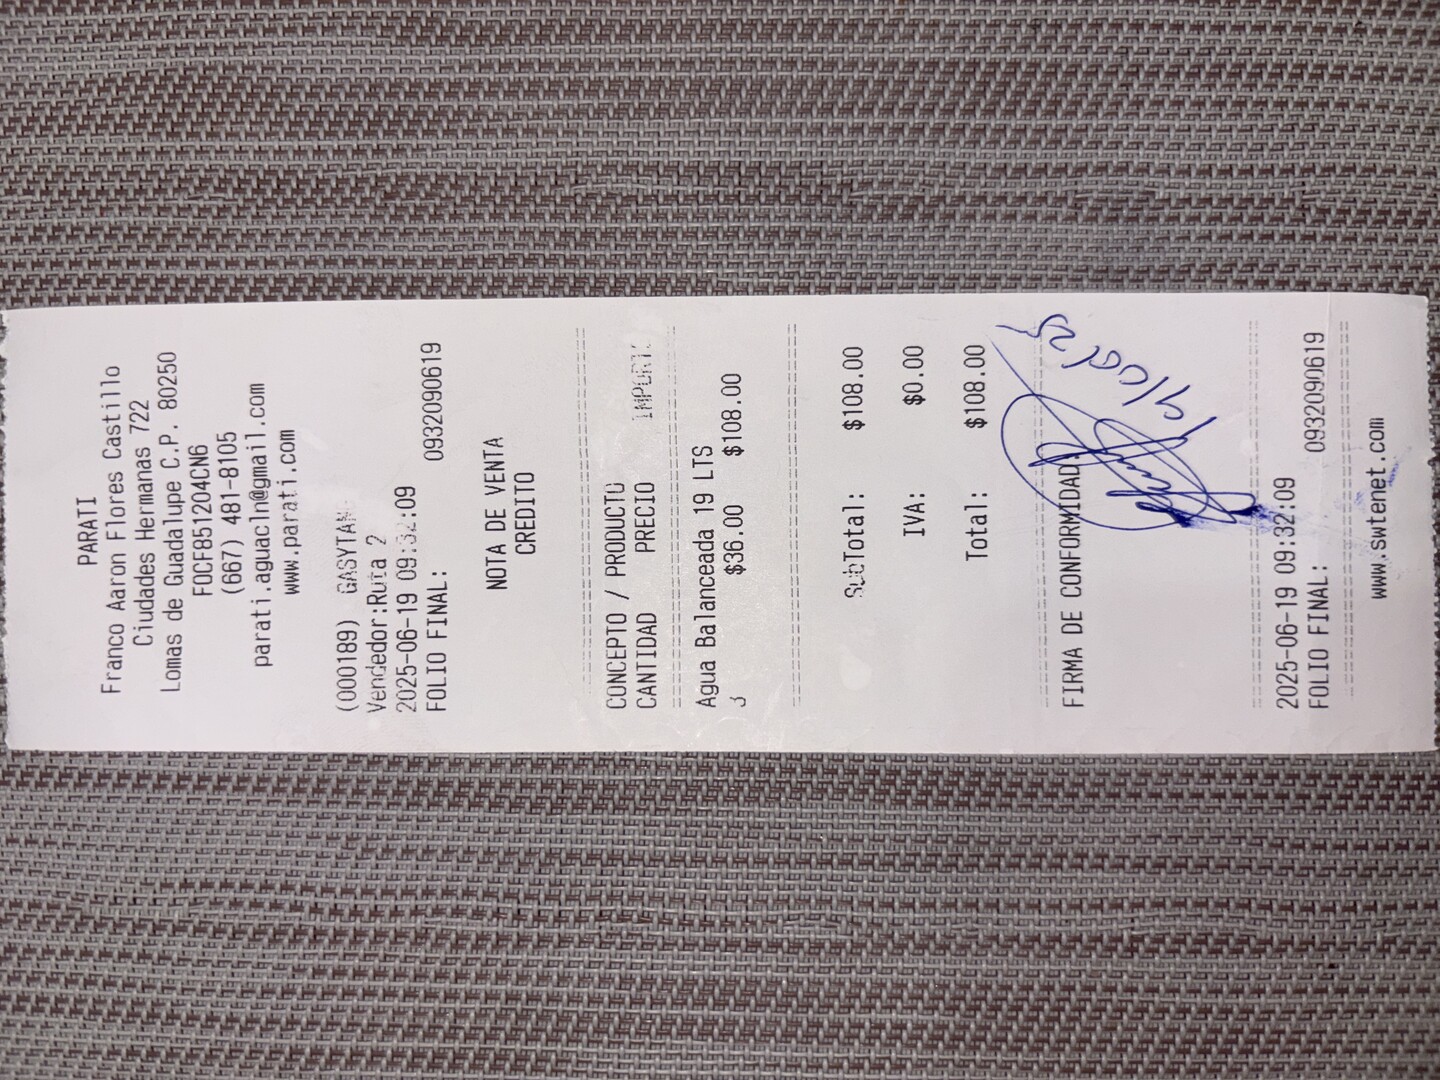 PARATI
Franco Aaron Flores Castillo
Ciudades Hermanas 722
Lomas de Guadalupe C.P. 80250
FOCF851204CN6
(667) 481-8105
parati.aguacln@gmail.com
www.parati.com
(000189) GASYTAN
Vendedor:Ruta 2
2025-06-19 09:32:09
FOLIO FINAL: 0932090619
NOTA DE VENTA
CREDITO
CONCEPTO / PRODUCTO
CANTIDAD PRECIO IMPORTE
Agua Balanceada 19 LTS
3 $36.00 $108.00
SubTotal: $108.00
IVA: $0.00
Total: $108.00
FIRMA DE CONFORMIDAD
2025-06-19 09:32:09
FOLIO FINAL: 0932090619
www.swtenet.com